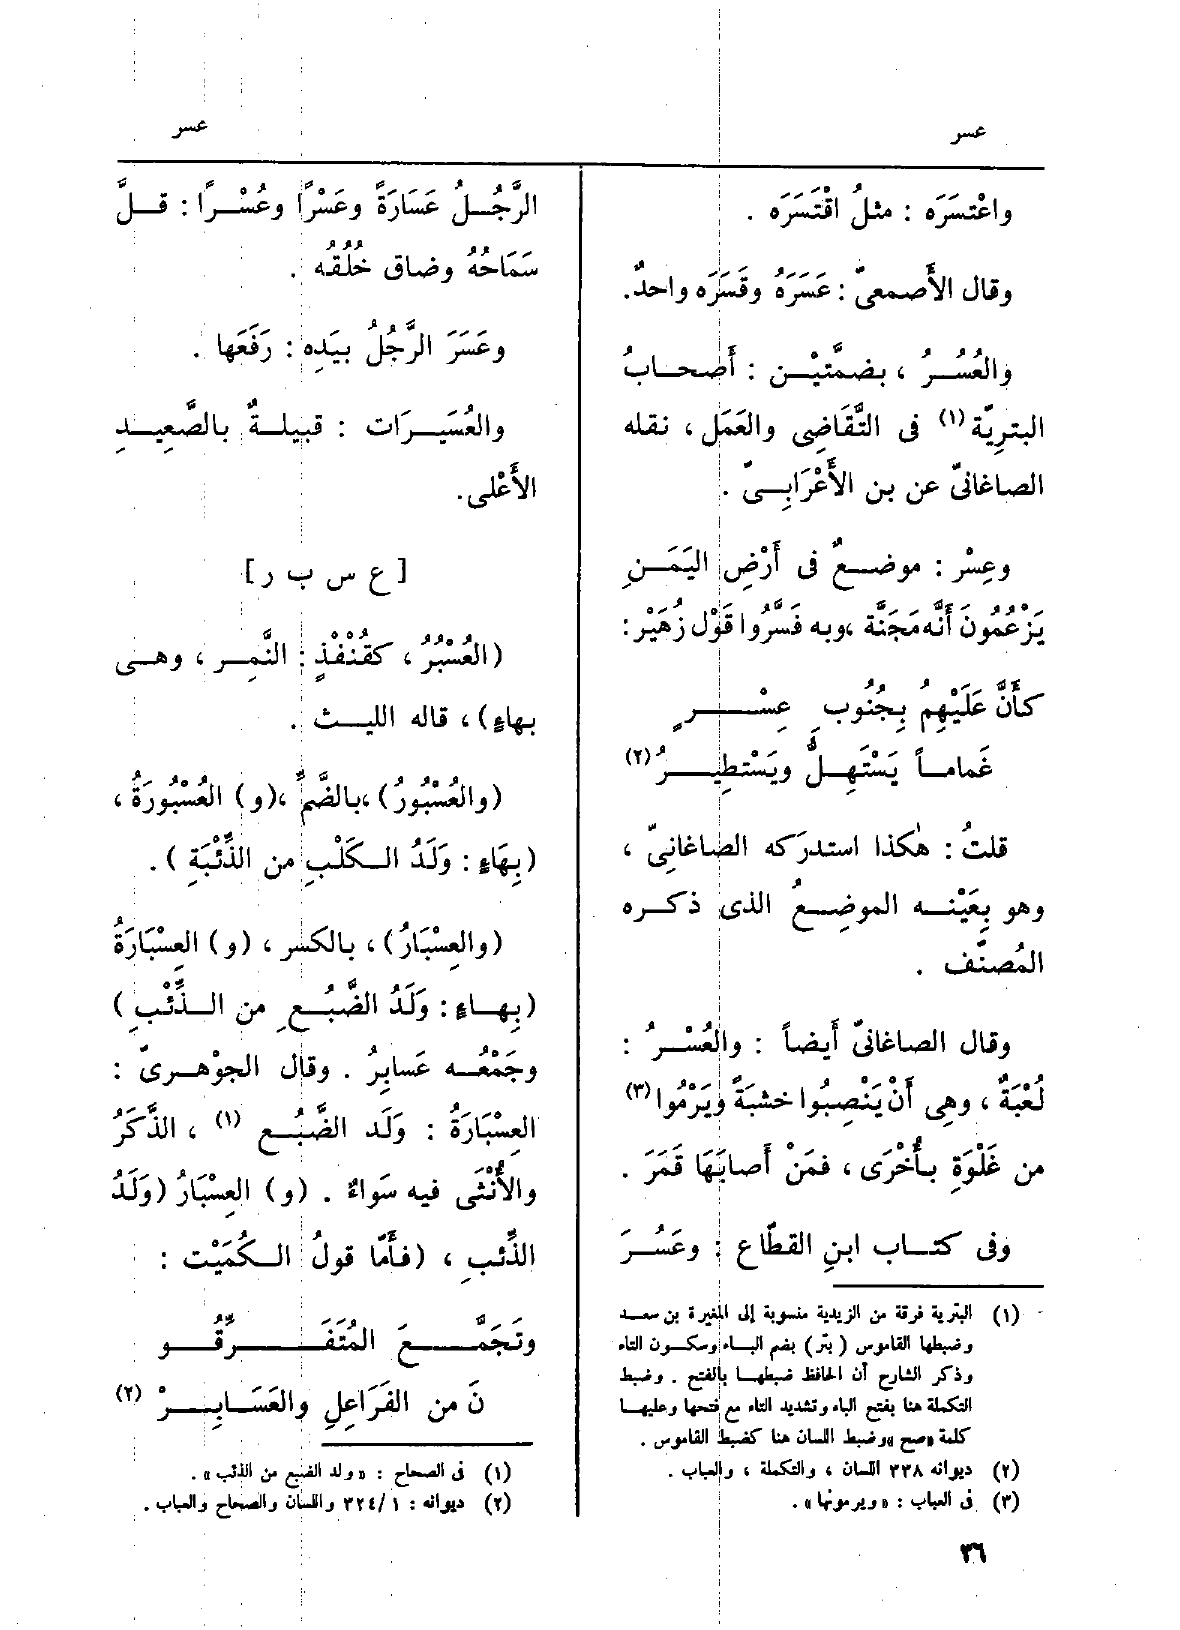 عسر
واعْتسَرَه : مثلُ اقْتَسَرَه .
وقال الأَصمعىّ : عَسَرَهُ وقَسَرَه واحدٌ.
والعُسُرُ ، بضمَّتيْن : أَصحابُ
البترِيّة (١) فى التَّقَاضِى والعَمَل ، نقله
الصاغانىّ عن بن الأَعْرَابِىّ .
وعِسْر : موضعٌ فى أَرْضِ اليَمَنِ
يَزْعُمُونَ أَنَّه مَجَنَّة ،وبه فَسَّرُوا قَوْل زُهَيْر :
كأَنَّ عَلَيْهِمُ بِجُنُوبِ عِسْرٍ
غَماماً يَسْتَهِلُّ ويَسْتطِيرُ (٢)
قلتُ : هٰكذا استدرَكه الصاغانِىّ ،
وهو بِعَيْنه الموضِعُ الذى ذكره
المُصنِّف .
وقال الصاغانىّ أَيضاً : والعُسْرُ :
لُعْبَةٌ ، وهِى أَنْ يَنْصِبُوا خشبَةً ويَرْمُوا (٣)
من غَلْوَةٍ بأُخْرَى ، فمَنْ أصابَهَا قَمَرَ .
وفى كتاب ابنِ القطّاع : وعَسُرَ
(١) البترية فرقة من الزيدية منسوبة إلى المغيرة بن سعد
وضبطها القاموس ( بتر ) بضم الباء وسكون التاء
وذكر الشارح أن الحافظ ضبطها بالفتح . وضبط
التكملة هنا بفتح الباء وتشديد التاء مع فتحها وعليها
كلمة «صح »وضبط اللسان هنا كضبط القاموس .
(٢) ديوانه ٣٣٨ اللسان ، والتكملة ، والعباب .
(٣) فى العباب : «ويرمونها» .
٣٦
عسر
الرَّجُلُ عَسَارَةً وعَسْرًا وعُسْرًا : قلَّ
سَمَاحُهُ وضاق خُلُقُه .
وعَسَرَ الرَّجُلُ بيَدِه : رَفَعَها .
والعُسَيرَات : قبيلةٌ بالصَّعِيدِ
الأَعْلى.
[ ع س ب ر ]
(العُسْبُرُ ، كقُنْفُذٍ : النَّمِر ، وهى
بهاءٍ) ، قاله الليث .
(والعُسْبُورُ) ،بالضَّمِّ ،(و) العُسْبُورَةُ ،
(بِهَاءٍ : وَلَدُ الكَلْبِ من الذِّئْبَةِ ) .
(والعِسْبَارُ) ، بالكسْر ، (و) العِسْبَارَةُ
(بِهاءٍ : وَلَدُ الضَّبُعِ من الذِّئْبِ )
وجَمْعُه عَسابِرُ . وقال الجوْهرىّ :
العِسْبَارَةُ : وَلَد الضَّبُع (١) ، الذَّكَرُ
والأُنْثَى فيه سَواءٌ . (و) العِسْبَارُ (وَلَدُ
الذِّئبِ ، (فأَمّا قولُ الكُمَيْت :
وتَجَمَّعَ المُتَفَرِّقُو
نَ من الفَرَاعِلِ والعَسَابِرْ (٢)
(١) فى الصحاح : «ولد الضبع من الذئب» .
(٢) ديوانه : ١ /٣٢٤ واللسان والصحاح والعباب .